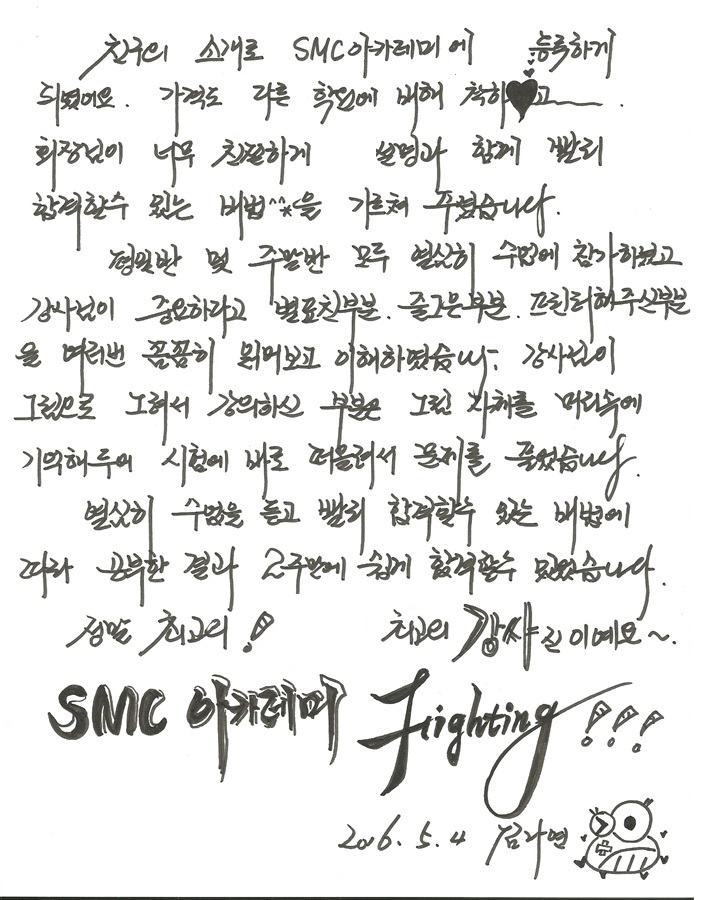 친구의 소개로 SMC아카데미에 등록하게
되었어요. 가격도 다른 학원에 비해 착하♥고 .
회장님이 너무 친절하게 설명과 함께 빨리
합격할수 있는 비법^^*을 가르쳐 주셨습니다.
평일반 및 주말반 모두 열심히 수업에 참가하였고
강사님이 중요하라고 별표친부분. 줄그은부분. 프린터해주신부분
을 여러번 꼼꼼히 읽어보고 이해하였습니다. 강사님이
그림으로 그려서 강의하신 부분은 그림 자체를 머리속에
기억해두어 시험에 바로 떠올려서 문제를 풀었습니다.
열심히 수업을 듣고 빨리 합격할수 있는 비법에
따라 공부한 결과 2주만에 쉽게 합격할수 있었습니다.
정말 최고의! 최고의 강사진이예요~.
SMC 아카데미 Fighting!!!
2016. 5. 4 김라연